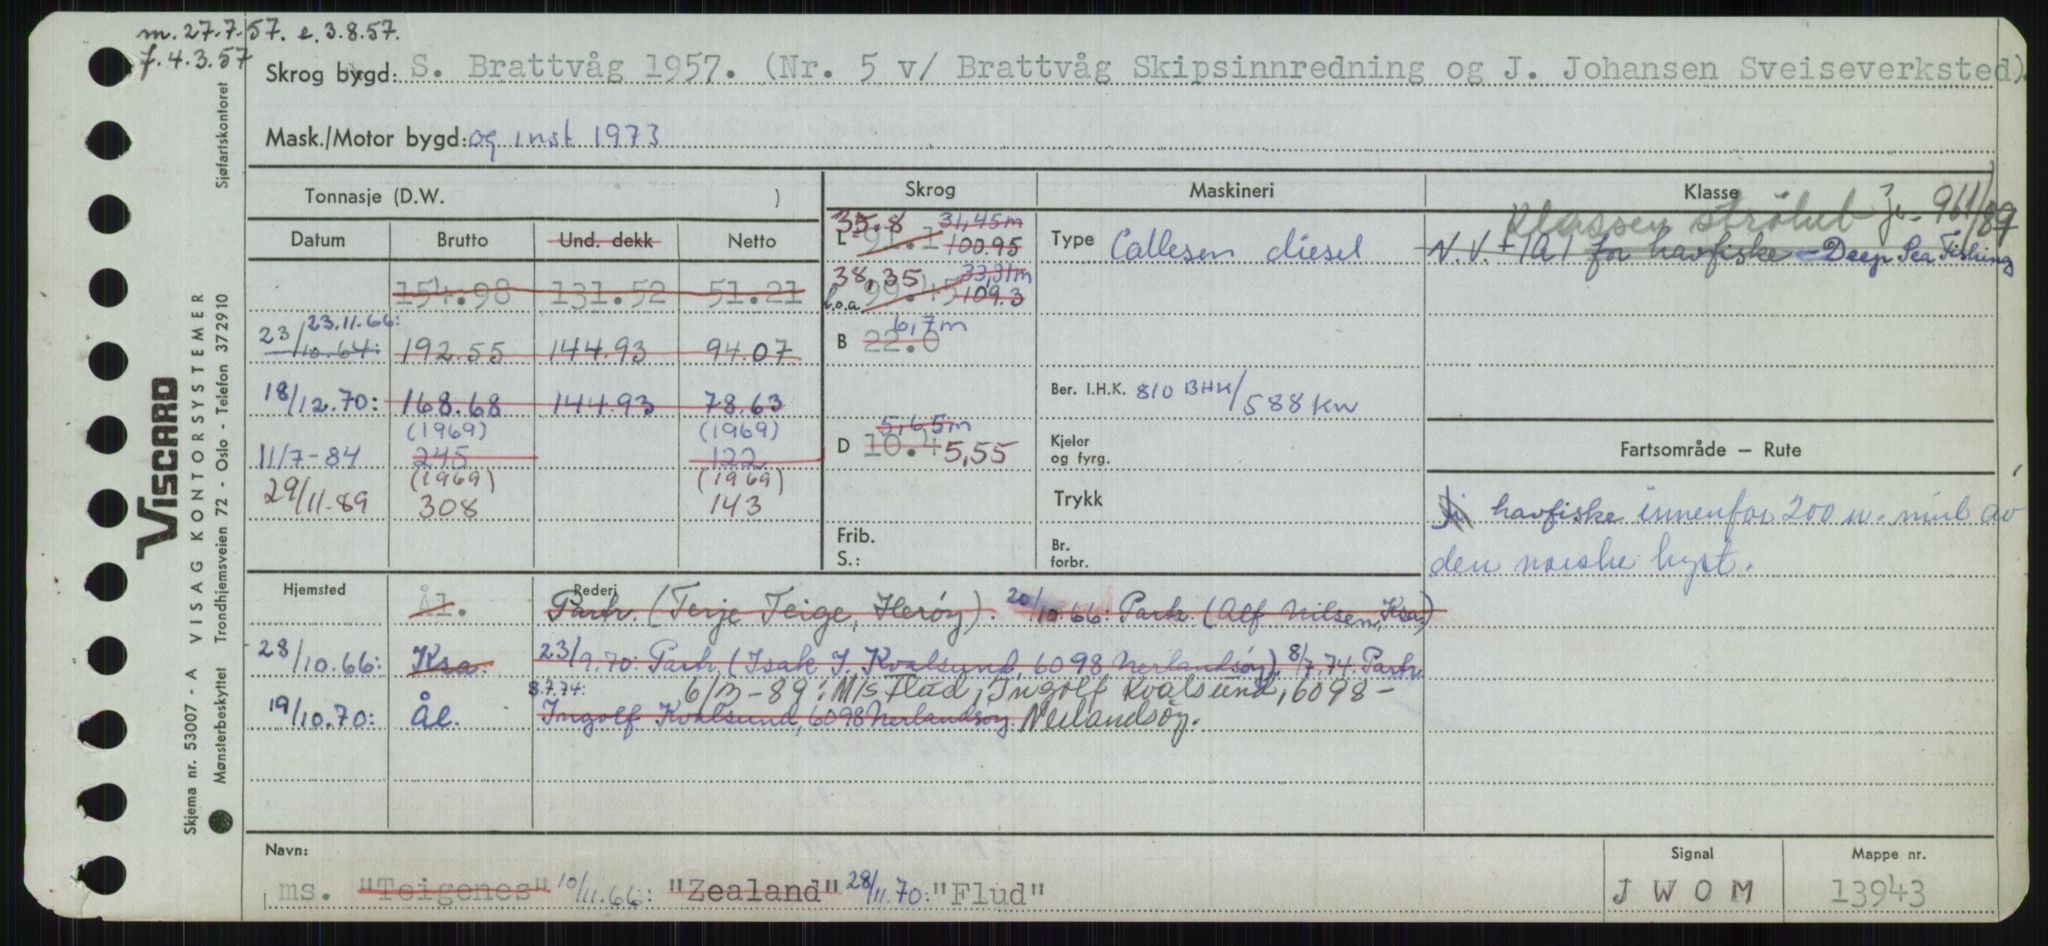 m. 27.7.57. e. 3.8.57.
f. 4.3.57
Skrog bygd: S. Brattvåg 1957. (Nr. 5 v/ Brattvåg Skipsinnredning og J. Johansen Sveiseverksted).
Mask./Motor bygd: og inst 1973
Tonnasje (D.W. )
Datum Brutto Und. dekk Netto
154.98 131.52 51.21
23.11.66:
23/10.64: 192.55 144.93 94.07
18/12.70: 168.68 144.93 78.63
(1969) (1969)
11/7-84 245 122
(1969) (1969)
29/11-89 308 143
Skrog
35.8 31,45m
L 100.95
38,35 33,31m
l.o.a 99.45 109.3
6,7m
B 22.0
5,65m
D 10.4 5,55
Frib.
S.:
Maskineri
Type Callesen diesel
Ber. I.H.K. 810 BHK/588 KW
Kjeler
og fyrg.
Trykk
Br.
forbr.
Klasse
Klassen 961/87
N.V. + 1A1 for havfiske - Deep Sea Fishing
Fartsområde — Rute
havfiske innenfor 200 n. mil av
den norske kyst.
Hjemsted Rederi
Ål. Parh. (Terje Teige, Herøy). 20/10.66: Parh. (Alf Nilsen, Ksa.)
28/10.66: Ksa. 23/9.70: Parh. (Isak J. Kvalsund, 6098 Nerlandsøy). 8/7.74 Parh.
6/3-89: M/S Flud, Ingolf Kvalsund, 6098 -
19/10.70: Ål. 8.7.74: Ingolf Kvalsund, 6098 Nerlandsøy. Nerlandsøy.
Navn: Signal Mappe nr.
ms. "Teigenes" 10/11.66: "Zealand" 28/11.70: "Flud" JWOM 13943
VISCARD
VISAG KONTORSYSTEMER
Skjema nr. 53007 - A
Mønsterbeskyttet Trondhjemsveien 72 - Oslo - Telefon 372910 Sjøfartskontoret